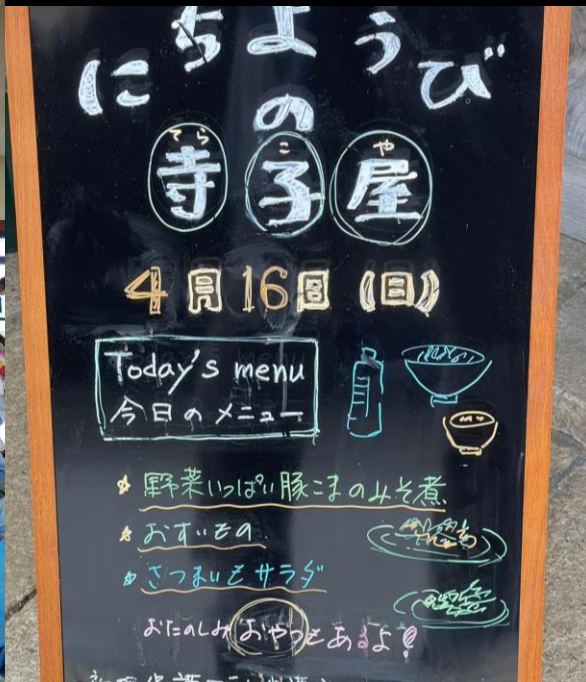 にちようび
の
てら こ や
寺子屋
4月16日(日)
Today's menu
今日のメニュー
☆ 野菜いっぱい豚こまのみそ煮
☆ おすいもの
☆ さつまいもサラダ
おたのしみおやつもあるよ!